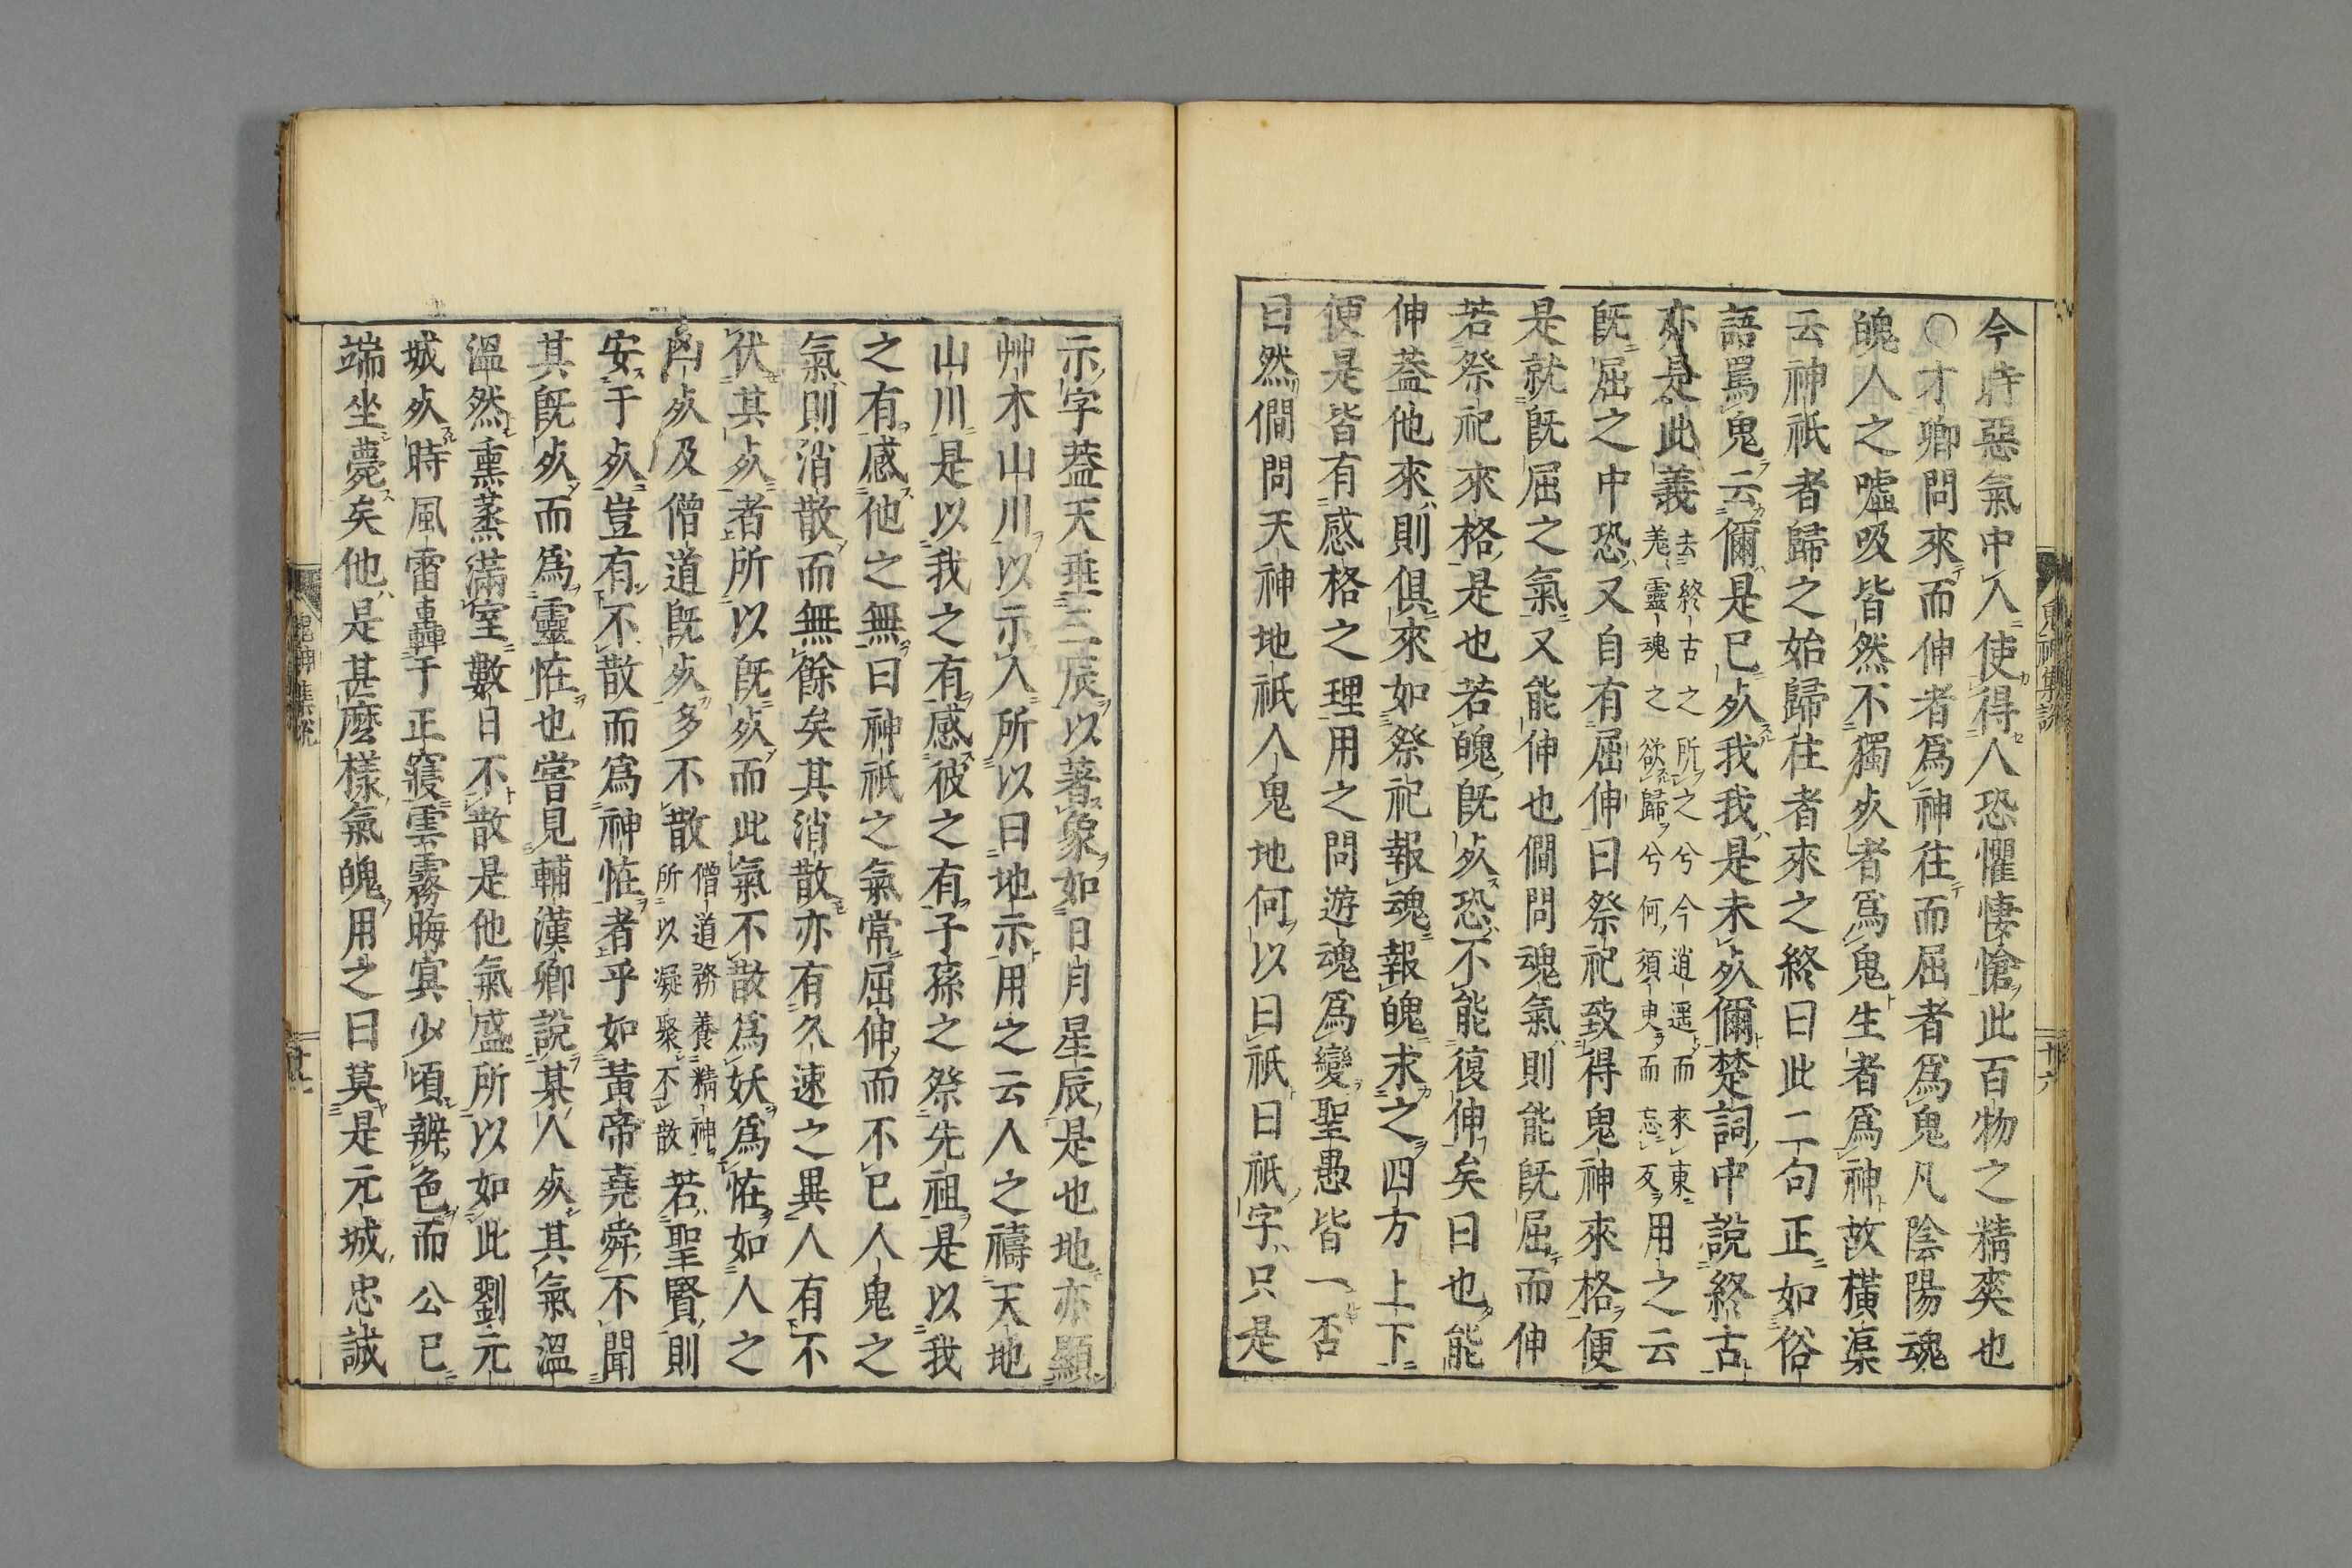 今時惡氣中人使得人恐懼悽愴此百物之精爽也
○才卿問來而伸者爲神往而屈者爲鬼凡陰陽魂
魄人之噓吸皆然不獨死者爲鬼生者爲神故橫渠
云神祇者歸之始歸往者來之終曰此二句正如俗
語罵鬼云儞是已死我我是未死儞楚詞中說終古
亦是此義去終古之所之兮今逍遥而來東羗靈魂之欲歸兮何須臾而忘反用之云
既屈之中恐又自有屈伸曰祭祀致得鬼神來格便
是就既屈之氣又能伸也僩問魂氣則能既屈而伸
若祭祀來格是也若魄既死恐不能復伸矣曰也能
伸葢他來則俱來如祭祀報魂報魄求之四方上下
便是皆有感格之理用之問遊魂爲變聖愚皆一否
曰然僩問天神地祇人鬼地何以曰祇曰祇字只是
示字葢天垂三辰以著象如日月星辰是也地亦顯
艸木山川以示人所以曰地示用之云人之禱天地
山川是以我之有感彼之有子孫之祭先祖是以我
之有感他之無曰神祇之氣常屈伸而不已人鬼之
氣則消散而無餘矣其消散亦有久速之異人有不
伏其死者所以既死而此氣不散爲妖爲恠如人之
凶死及僧道既死多不散僧道務養精神所以凝聚不散若聖賢則
安于死豈有不散而爲神恠者乎如黃帝堯舜不聞
其既死而爲靈恠也嘗見輔漢卿說某人死其氣溫
溫然熏蒸滿室數日不散是他氣盛所以如此劉元
城死時風雷轟于正寢雲霧晦冥少頃辨色而公已
端坐薨矣他是甚麼樣氣魄用之曰莫是元城忠誠
鬼神集說
廿六
鬼神集說